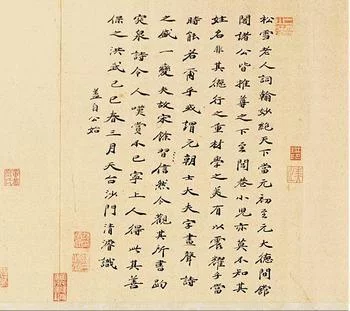 松雪老人詞翰妙絕天下當元初至元大德間館
閣諸公皆推尊之下至閭巷小兒亦莫不知其
姓名非其德行之重材學之美有以震耀乎當
時能若爾乎或謂元朝士大夫字畫聲詩
之盛一變夫故宋餘習信然今觀其所書趵
突泉詩令人嘆賞不已寧上人得此其善
保之洪武己巳春三月天台沙門清濬識
蓋自公始